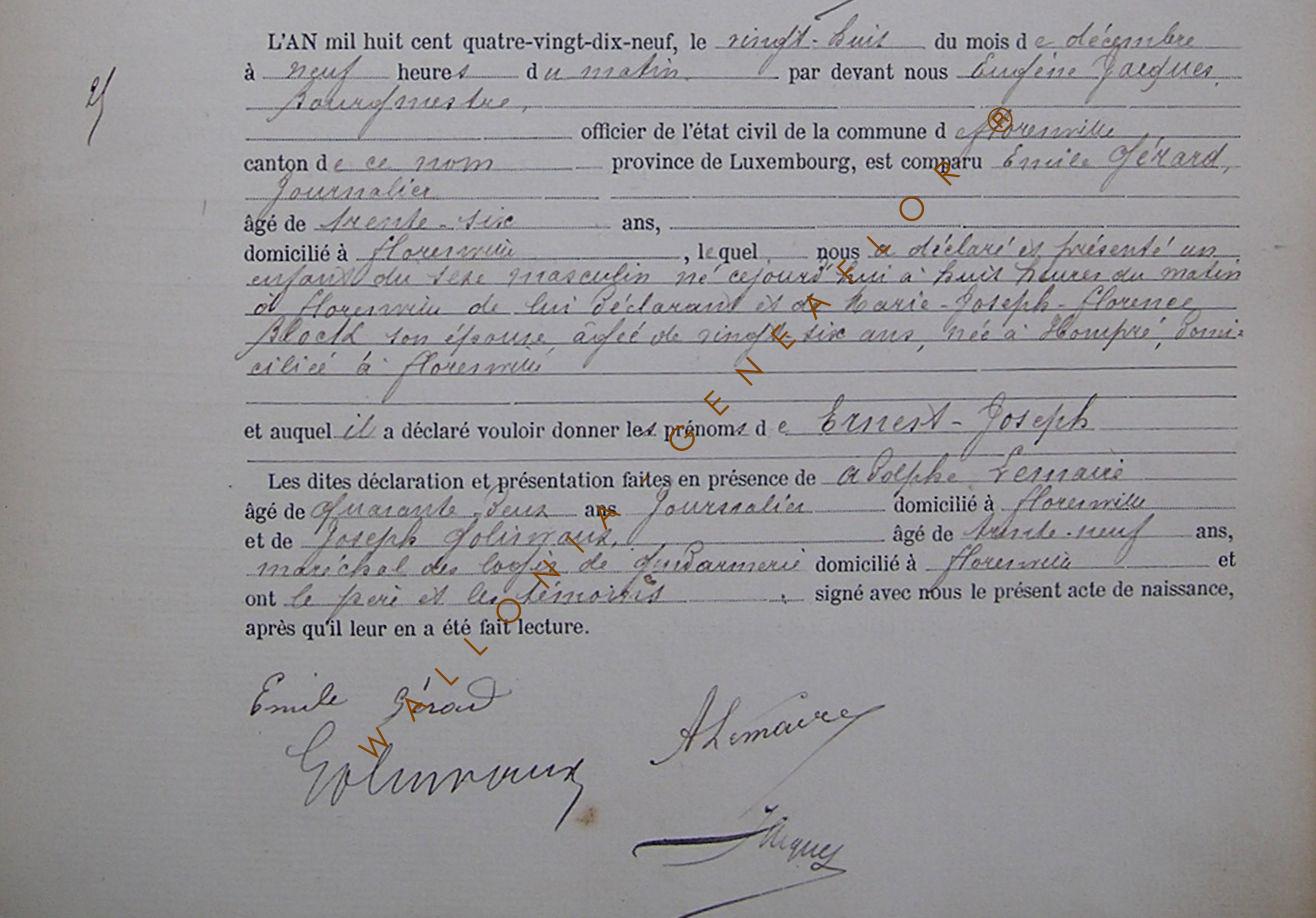 L'AN mil huit cent quatre-vingt-dix-neuf, le vingt-huit du mois de décembre
à neuf heures du matin par devant nous Eugène Jacques,
Bourgmestre,
officier de l'état civil de la commune de Florenville
canton de ce nom province de Luxembourg, est comparu Emile Gérard,
Journalier
âgé de trente-six ans,
domicilié à Florenville, lequel nous a déclaré et présenté un
enfant du sexe masculin né cejourd'hui à huit heures du matin
à Florenville de lui déclarant et de Marie-Joseph-Florence
Block son épouse âgée de vingt six ans, née à Hompré, domi-
ciliée à Florenville
et auquel il a déclaré vouloir donner les prénoms de Ernest-Joseph
Les dites déclaration et présentation faites en présence de Adolphe Lemaire
âgé de Quarante deux ans Journalier domicilié à Florenville
et de Joseph Golinvaux, âgé de trente-neuf ans,
maréchal des logis de Gendarmerie domicilié à Florenville et
ont le père et les témoins signé avec nous le présent acte de naissance,
après qu'il leur en a été fait lecture.
Emile Gérard
ALemaire
Golinvaux
Jacques
WALLONIA GENEALOR ®